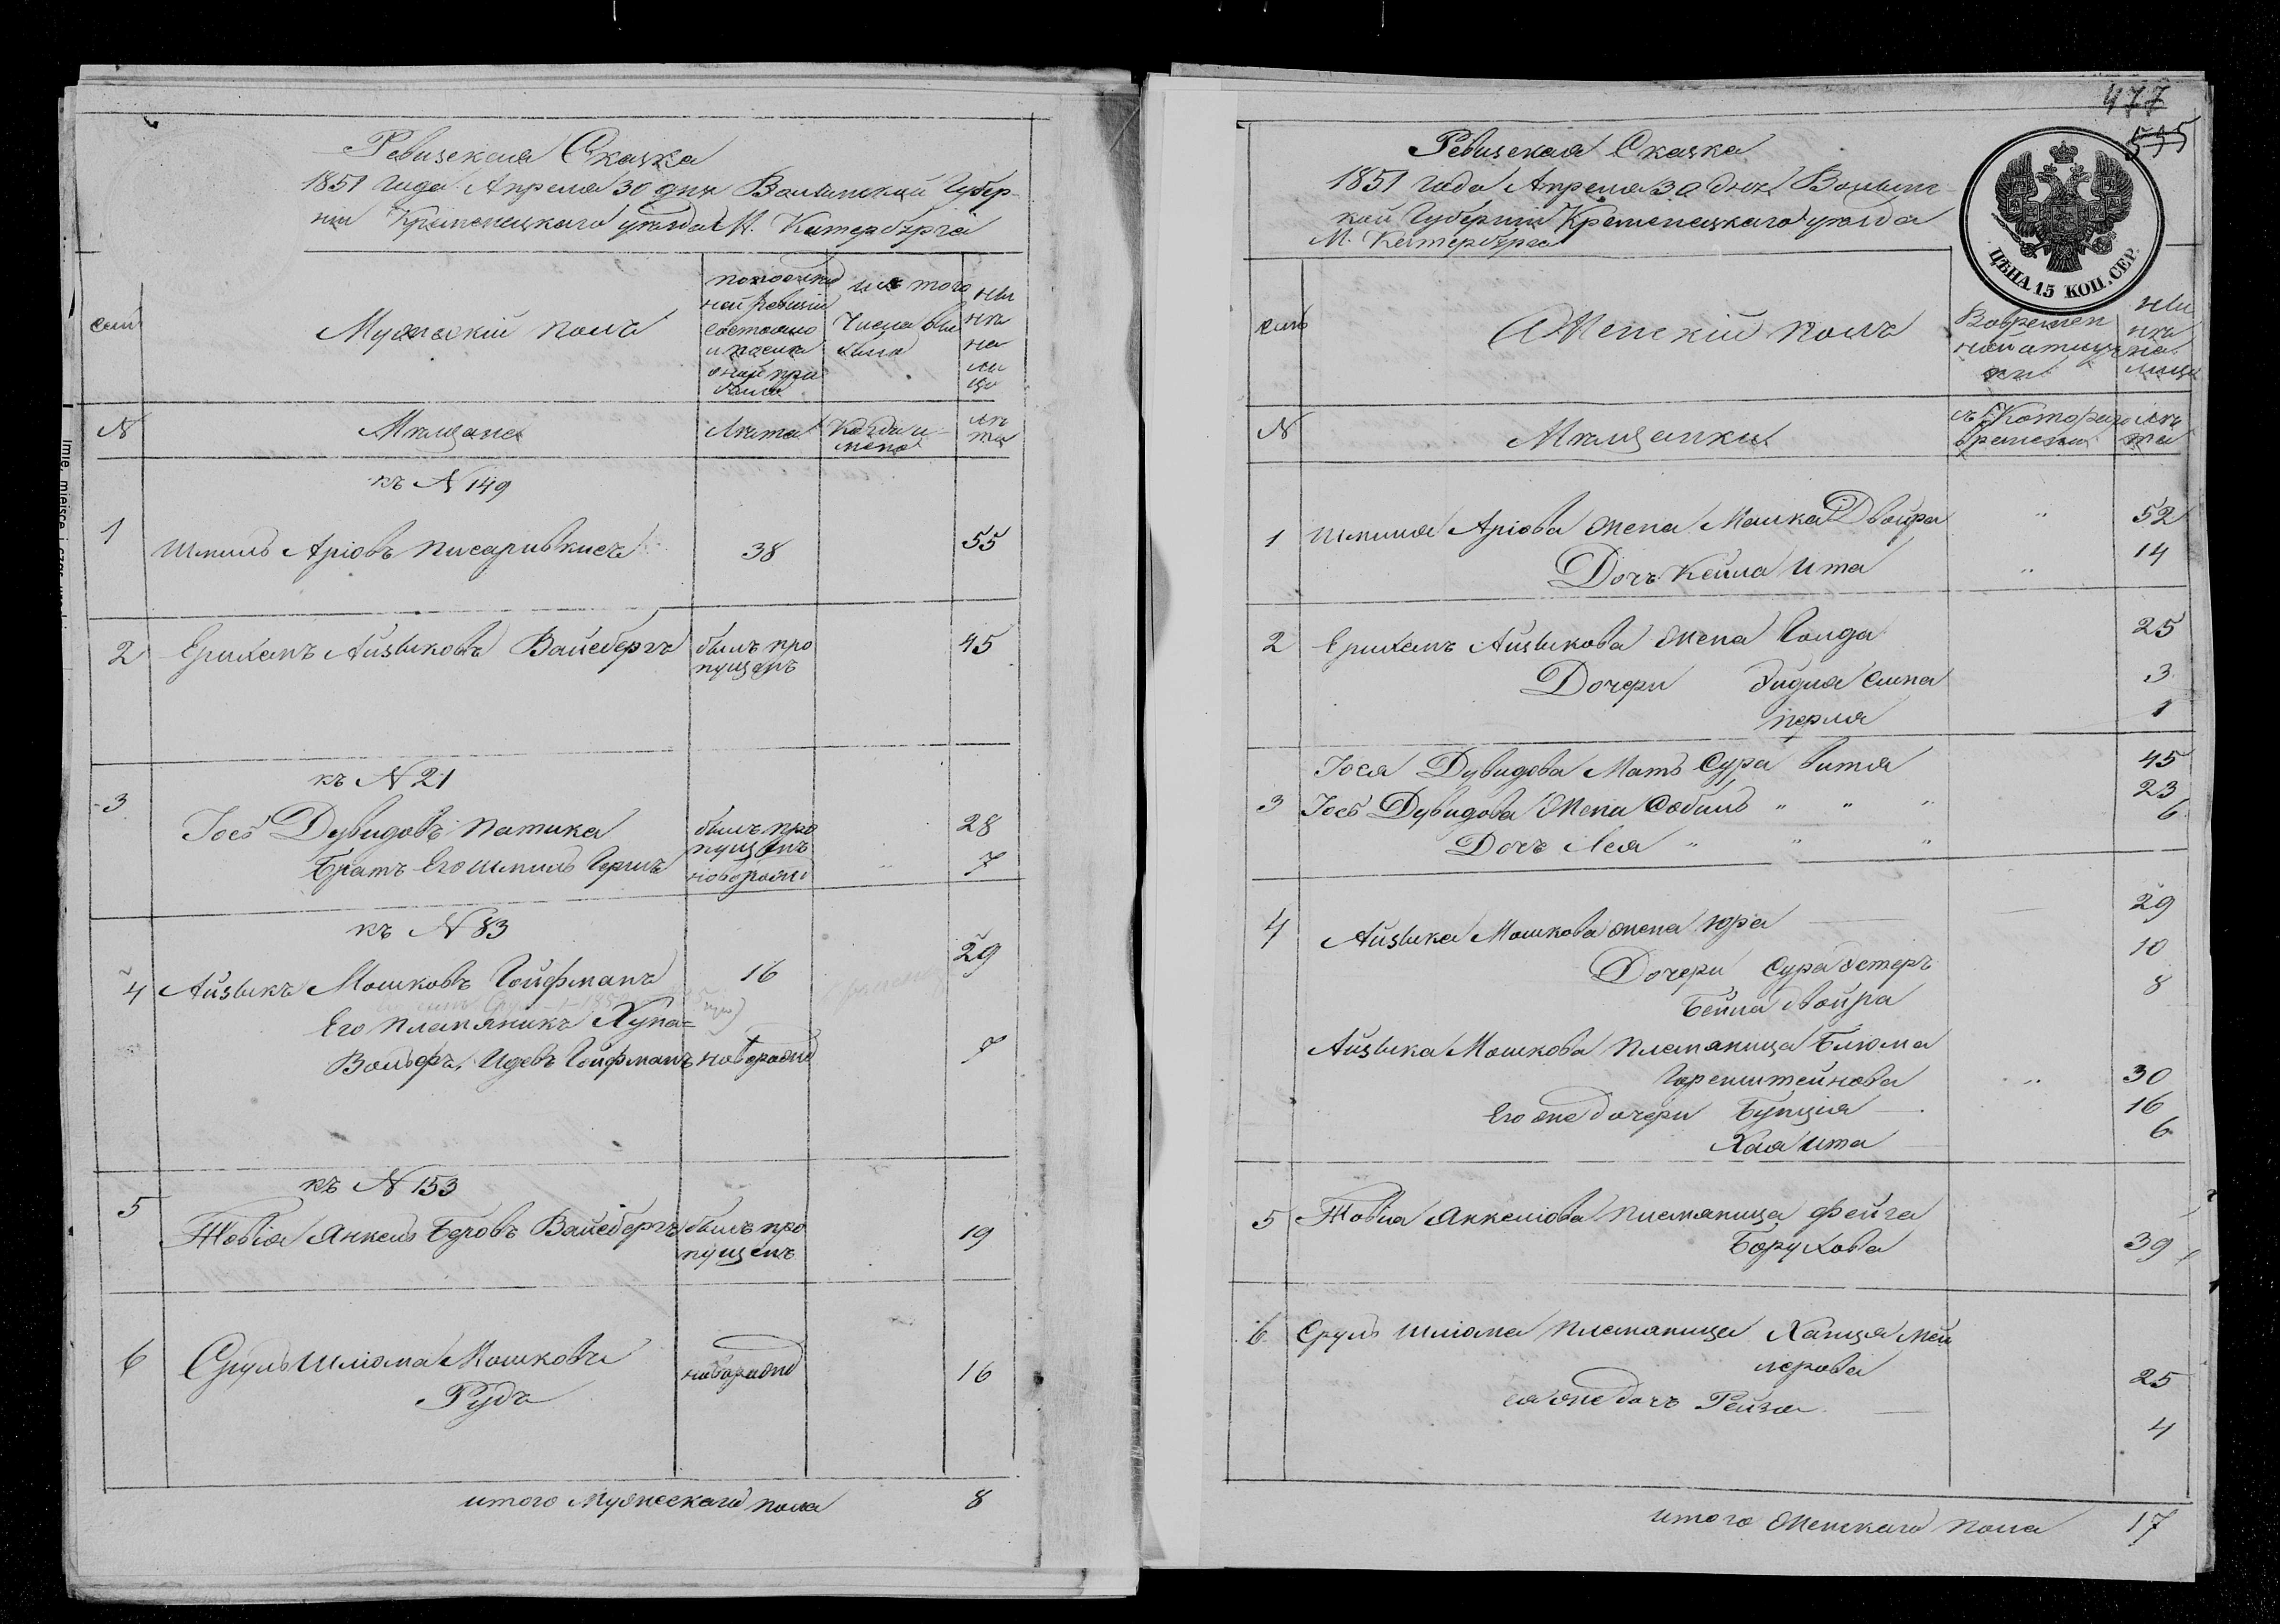 Ревизская Сказка
1851 Года Апреля 30 дня Волынской Губер-
нiи Кременецкаго уѣзда М. Катербурга
семьи
Мужескiй полъ
по послѣд
ней ревизiи
состояло
и послѣ
оной при
было
изъ того
числа вы
было
ны
нѣ
на
ли
цо
N
Мѣщане
Лѣта
Когда и
менно
лѣ
та
къ N 149
1
Шмиль Арiовъ Писаривкисъ
38
55
2
Ерихемъ Айзыковъ Вайсбергъ
былъ про
пущенъ
45
къ N 21
3
Iосъ Дувидовъ Патика
былъ про
пущенъ
28
Братъ Его Шмиль Гершъ
новорожд
7
къ N 83
4
Айзыкъ Мошковъ Гойфманъ
16
29
Его племяникъ Хуна=
Вольфъ Идевъ Гойфманъ
новорожд
7
къ N 153
5
Товiя Янкель Беровъ Вайсбергъ
былъ про
пущенъ
19
6
Сруль Шлiома Мошковъ
Рудъ
новорожд
16
итого Мужескаго пола
8
477
535
Ревизская Сказка
1851 года Апреля 30 дня Волынс
кой Губернiи Кременецкаго уѣзда
М. Катербурга
ЦѢНА 15 КОП. СЕР.
семьи
Женскiй полъ
Во времен
ной отлуч
ки
ны
нѣ
на
лицо
N
Мѣщанки
съ Котораго
времени
лѣ
та
1
Шмиля Арiова жена Малка Двойра
"
52
Дочъ Кейла Ита
"
14
2
Ерихемъ Айзыкова жена Голда
25
Дочери Видля Сима
3
Перля
1
Iося Дувидова Мать Сура Витя
45
3
Iосъ Дувидова Жена Собиль " " "
23
Дочъ Лея " " "
6
4
Айзыка Мошкова жена Юра
29
Дочери Сура Эстеръ
10
Бейла Двойра
8
Айзыка Мошкова племяница Блюма
Горенштейнова
"
30
Его же дочери Бунцiя
16
Хая Ита
6
5
Товiа Янкелiова племяница Фейга
Борухова
39
6
Сруль Шлiома племяница Ханця Мей
лерова
25
ея же дочъ Рейза
4
итого Женскаго пола
17